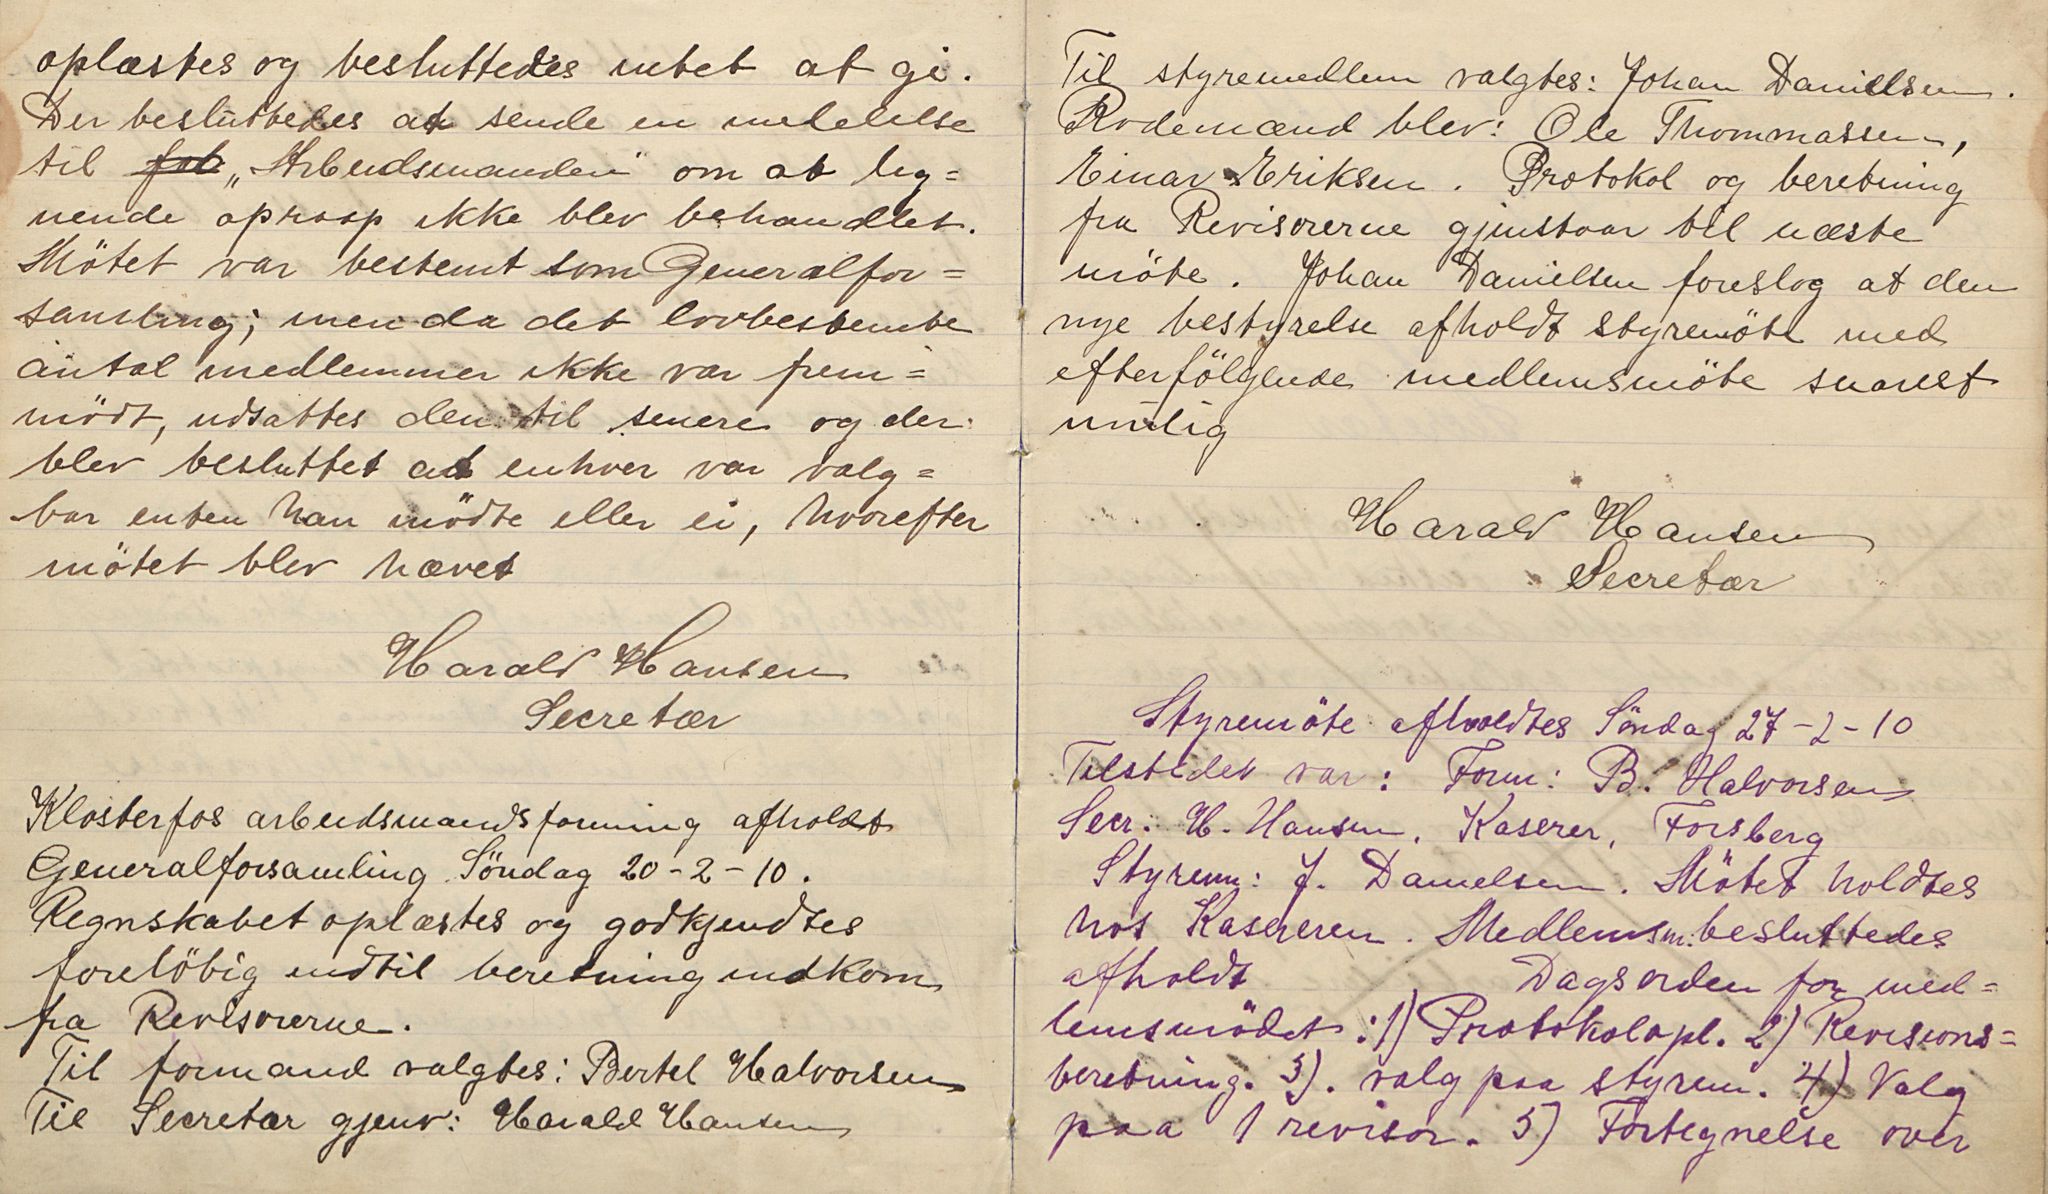 oplæstes og besluttedes intet at gi.
Der besluttedes at sende en meddelse
til „Arbeidsmanden" om at lig=
nende opraap ikke blev behandlet.
Mötet var bestemt som Generalfor=
samling; men da det lovbestemte
antal medlemmer ikke var frem=
mödt, udsattes den til senere og der
blev besluttet at enhver var valg=
bar enten han mödte eller ei, hvorefter
mötet blev hævet
Harald Hansen
Secretær
Klosterfos arbeidsmandsforening afholdt
Generalforsamling Söndag 20-2-10.
Regnskabet oplæstes og godkjendtes
forelöbig indtil beretning indkom
fra Revisorerne.
Til formand valgtes: Bertel Halvorsen
Til Secretær gjenv: Harald Hansen
Til styremedlem valgtes: Johan Danielsen.
Rodemænd blev: Ole Thommassen,
Einar Eriksen. Protokol og beretning
fra Revisorerne gjenstaar til næste
möte. Johan Danielsen foreslog at den
nye bestyrelse afholdt styremöte med
efterfölgende medlemsmöte snarest
mulig
Harald Hansen
Secretær
Styremöte afholdtes Söndag 27-2-10
Tilstedet var: Form: B. Halvorsen
Secr. H. Hansen, Kaserer, Forsberg
Styrem: J. Danielsen. Mötet holdtes
hos Kasereren. Medlemsm. besluttedes
afholdt Dagsorden for med=
lemsmödet: 1) Protokolopl. 2) Revisions=
beretning. 3). valg paa styrem. 4) Valg
paa 1 revisor. 5) Fortegnelse over